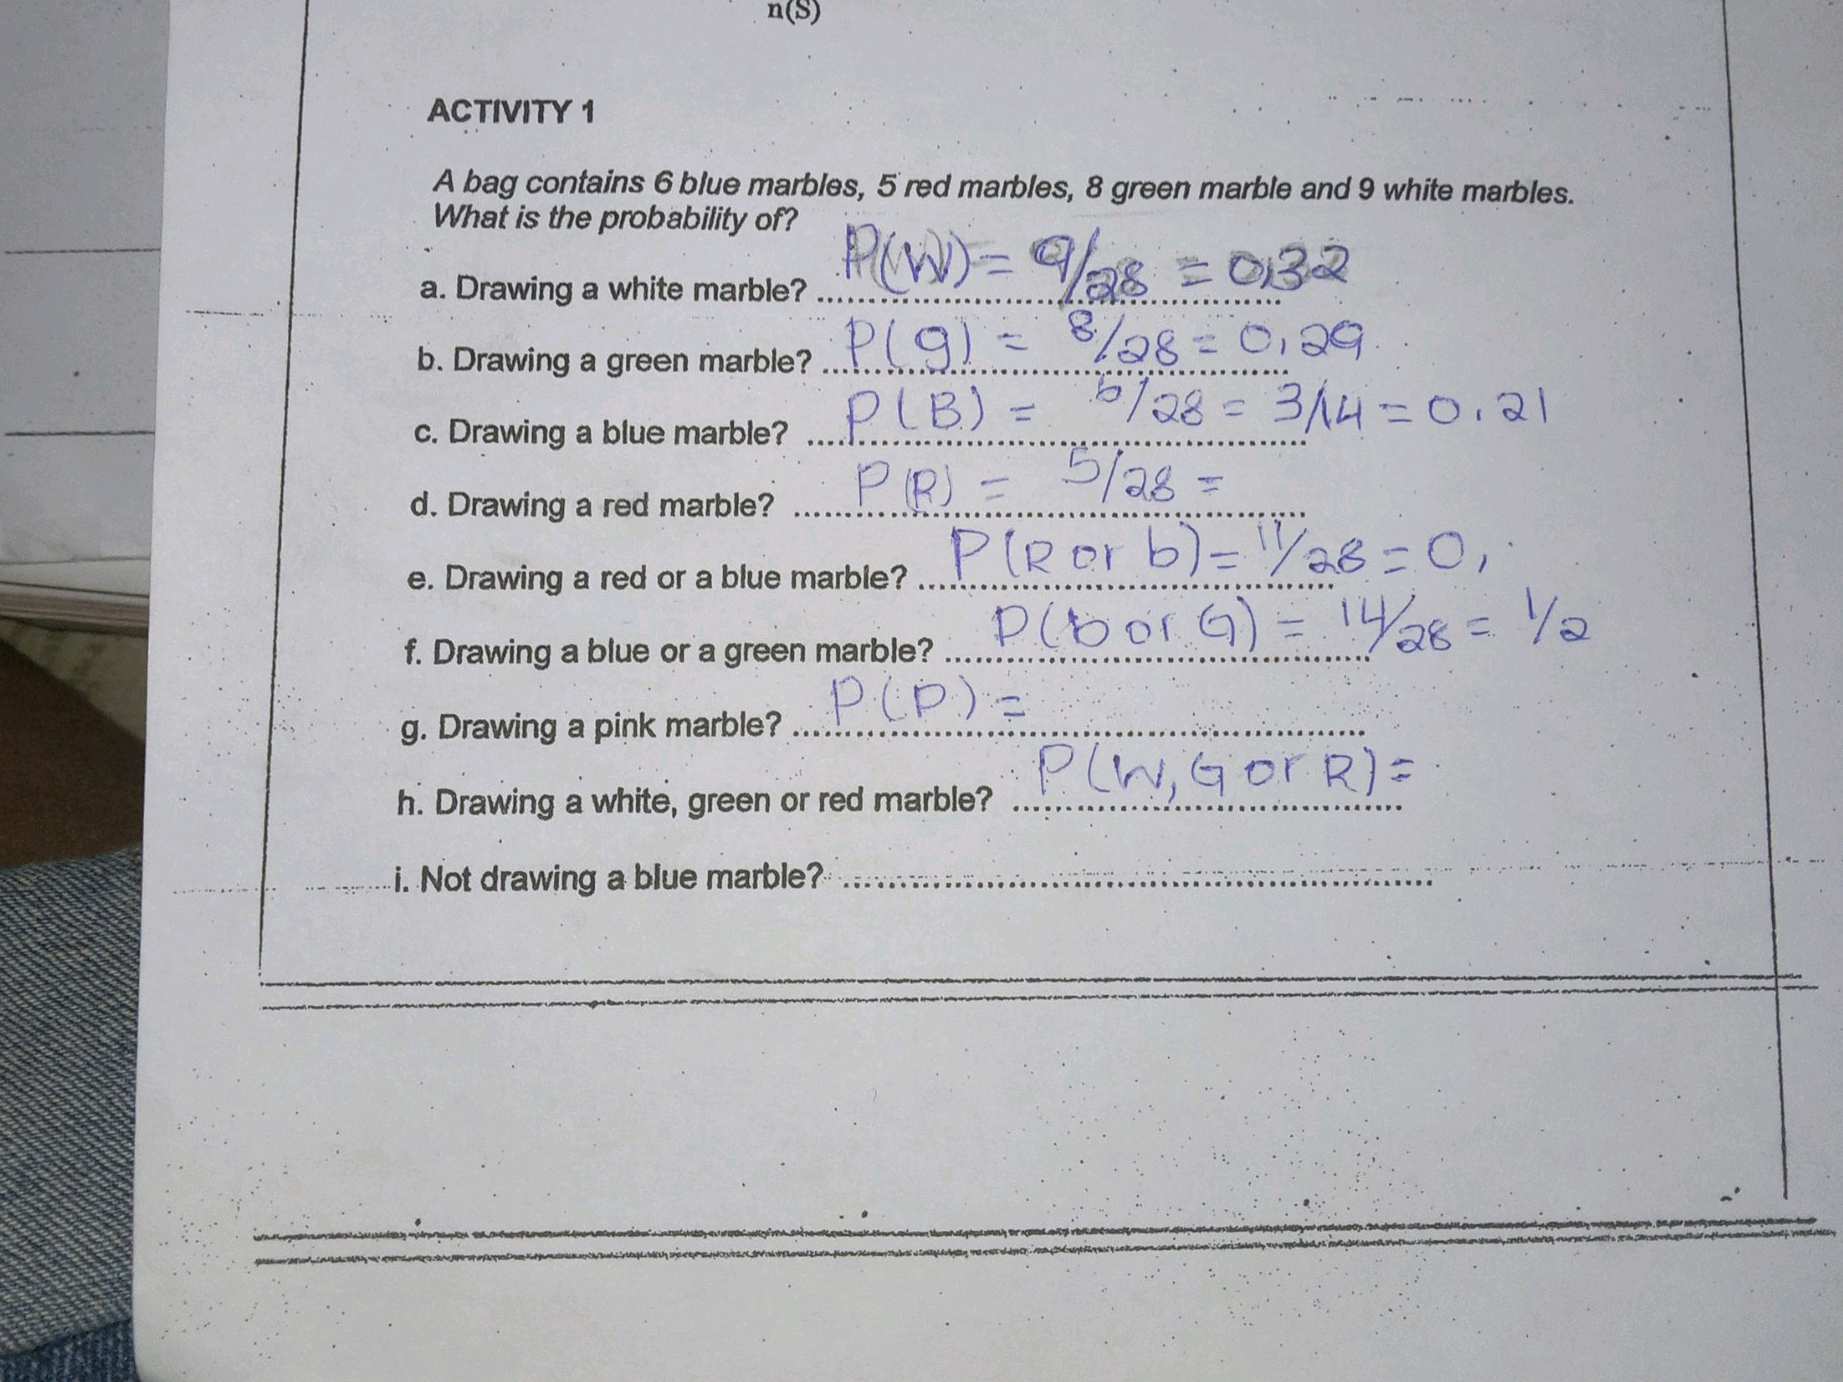 n(S)
ACTIVITY 1
A bag contains 6 blue marbles, 5 red marbles, 8 green marble and 9 white marbles.
What is the probability of?
a. Drawing a white marble? P(W) = 9/28 = 0,32
b. Drawing a green marble? P(g) = 8/28 = 0,29
c. Drawing a blue marble? P(B) = 6/28 = 3/14 = 0,21
d. Drawing a red marble? P(R) = 5/28 =
e. Drawing a red or a blue marble? P(R or b) = 11/28 = 0,
f. Drawing a blue or a green marble? P(b or G) = 14/28 = 1/2
g. Drawing a pink marble? P(P) =
h. Drawing a white, green or red marble? P(W, G or R) =
i. Not drawing a blue marble?